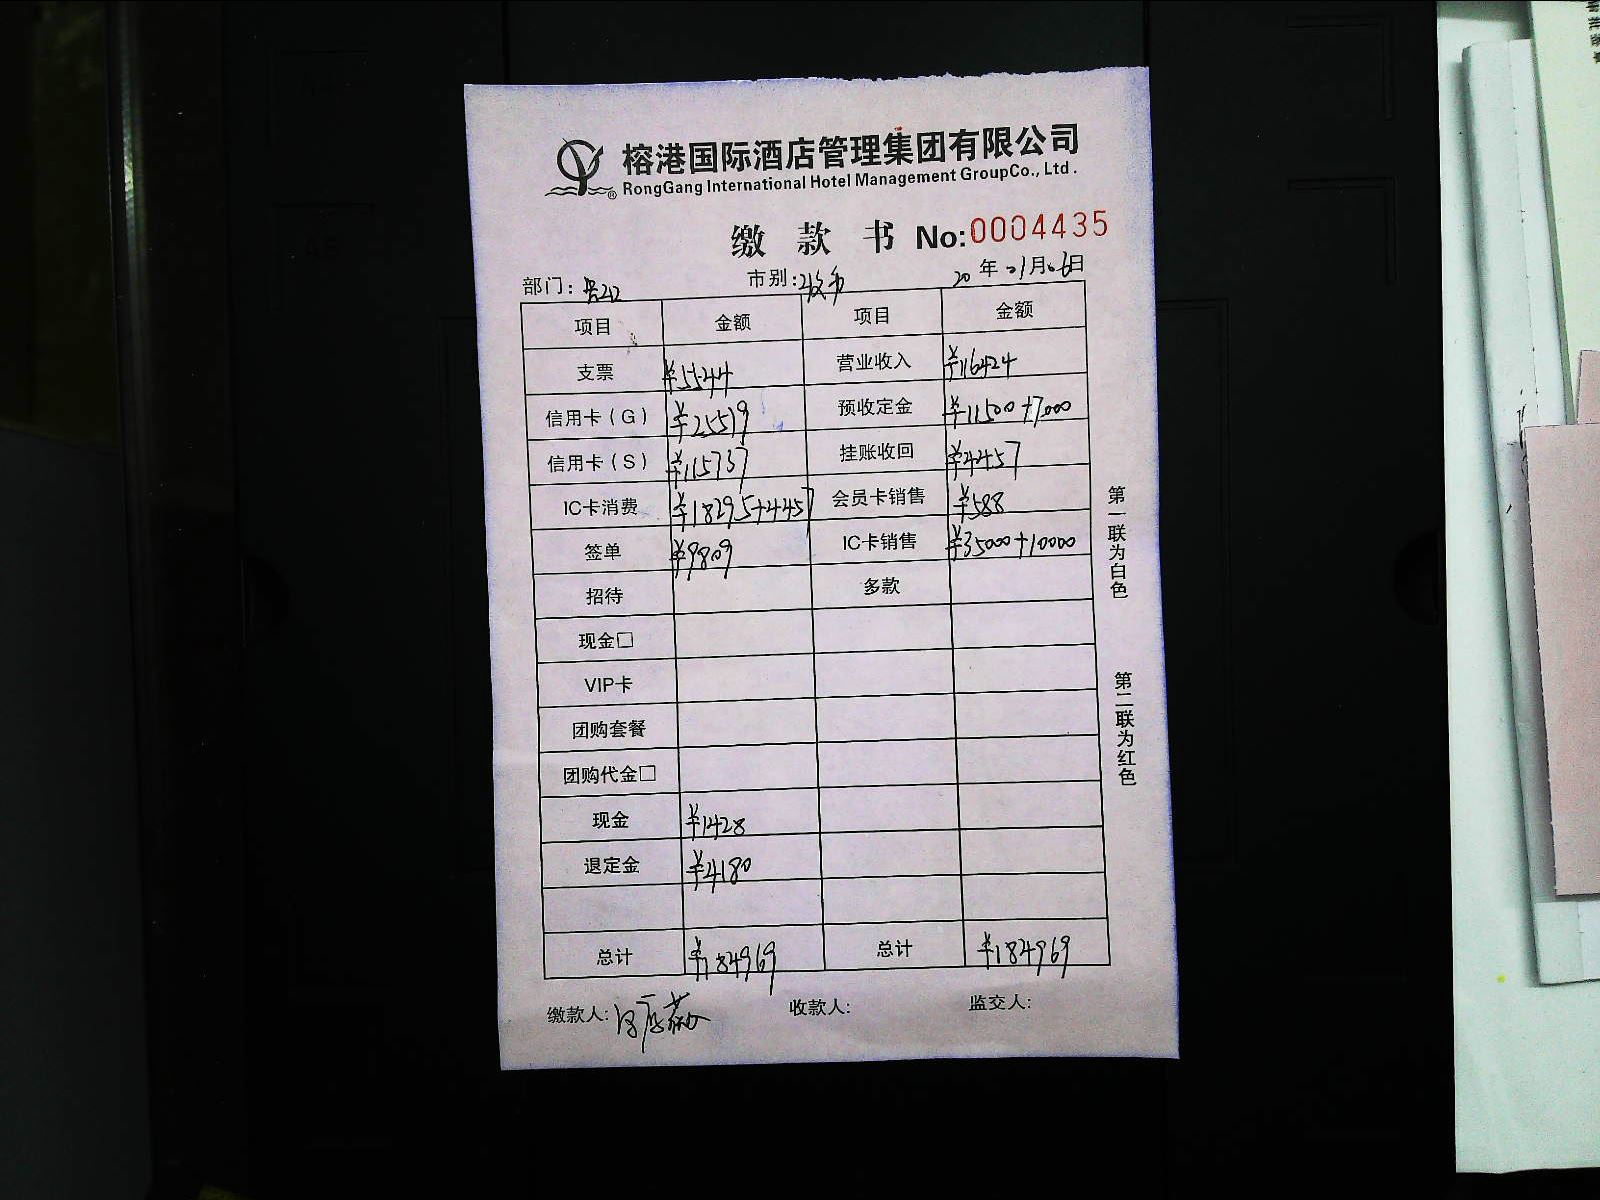 榕港国际酒店管理集团有限公司
RongGang International Hotel Management GroupCo., Ltd.
缴款书 No:0004435
部门: 市别: 20年01月06日
项目 金额 项目 金额
支票 ¥5544 营业收入 ¥116424
信用卡(G) ¥25519 预收定金 ¥11500+7000
信用卡(S) ¥115737 挂账收回 ¥4457
IC卡消费 ¥18295+4457 会员卡销售 ¥588
签单 ¥9809 IC卡销售 ¥35000+10000
招待 多款
现金□
VIP卡
团购套餐
团购代金□
现金 ¥1428
退定金 ¥4180
总计 ¥184969 总计 ¥184969
缴款人: 收款人: 监交人:
第一联为白色
第二联为红色